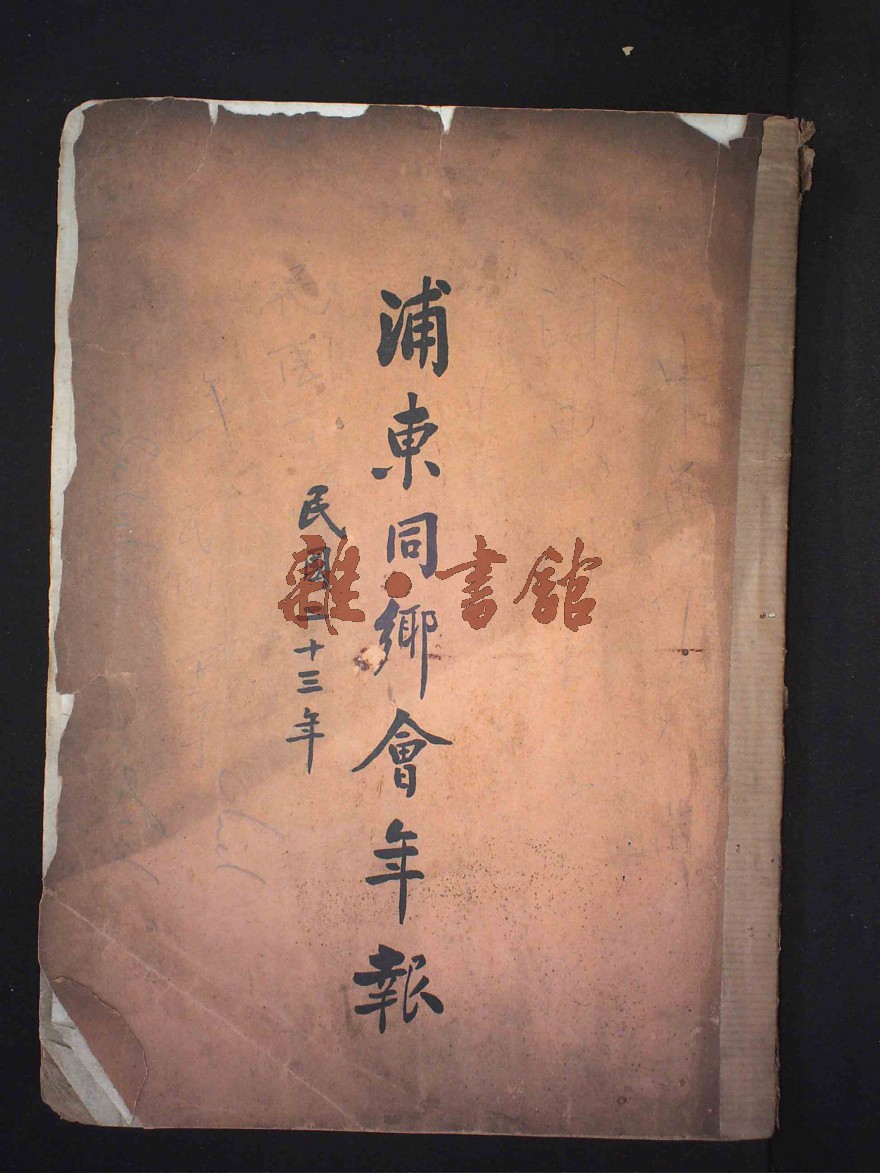 浦東同鄉會年報
民國二十三年
雜·書館